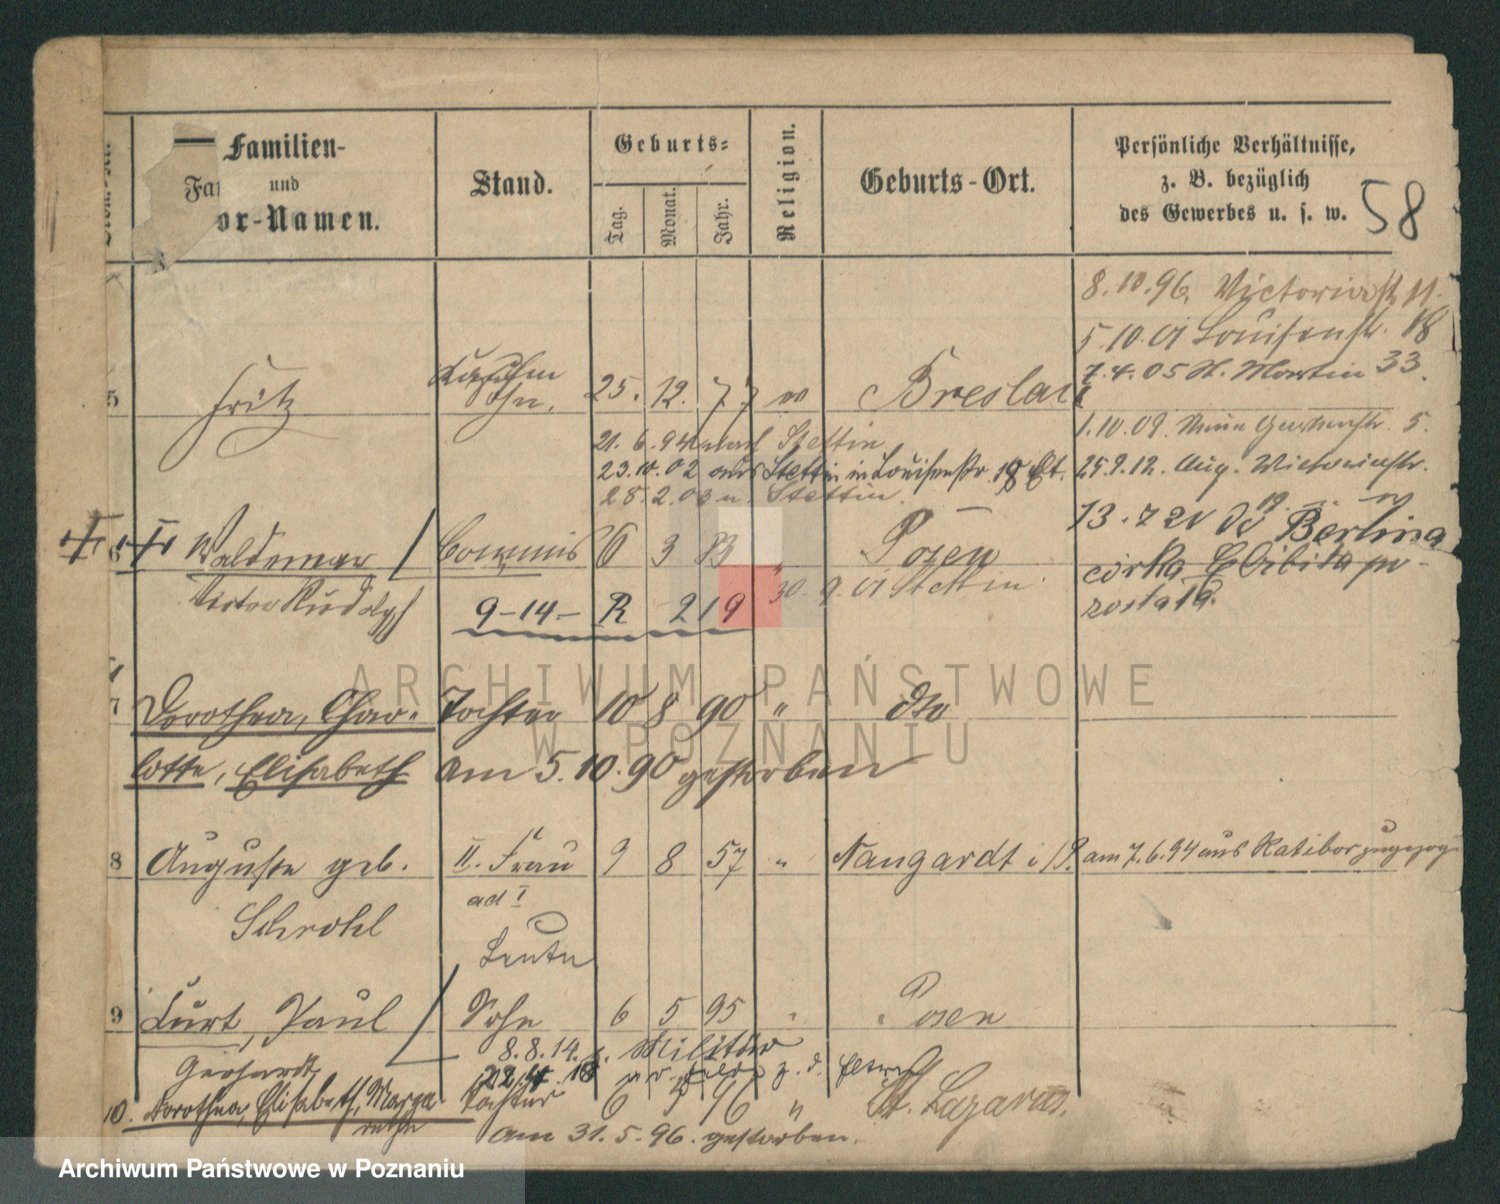 Familien-
und
Vor-Namen.
Stand.
Geburts-
Tag.
Monat.
Jahr.
Religion.
Geburts-Ort.
Persönliche Verhältnisse,
z. B. bezüglich
des Gewerbes u. s. w.
58
8.10.96 Victoriastr. 11.
5.10.01 Louisenstr. 18
7.4.05 St. Martin 33.
5 Fritz Sohn. 25. 12. 77 Breslau
1.10.09. Neue Gartenstr. 5.
21.6.94 nach Stettin
23.10.02 aus Stettin in Louisenstr. 18
25.9.12. Aug. Victoriastr.
28.2.03 n. Stettin
6 Waldemar Commis 6 3 83 " Posen
13.7 21 do Berlina
Victor Rudolph
30.9.01 Stettin
córka
9-14- R 219
7 Dorothea, Char- Tochter 10 8 90 " dto
lotte, Elisabeth am 5.10.90 gestorben
8 Auguste geb. II. Frau 9 8 57 " Naugardt i/P. am 7.6.94 aus Ratibor zugezogen
ad I
Schrohl
Leute
9 Curt, Paul Sohn 6 5 95 " Posen
Gerhardt
8.8.14. z. Militär
10. Dorothea, Elisabeth, Marga Tochter 6 5 96 " St. Lazarus.
rethe
am 31.5.96. gestorben.
ARCHIWUM PAŃSTWOWE
W POZNANIU
Archiwum Państwowe w Poznaniu